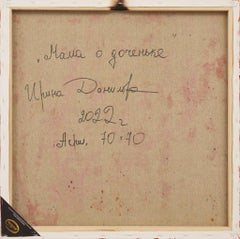 „Мама о доченьке"
Ирина Данилова
2022 г
Акрил, 70×70